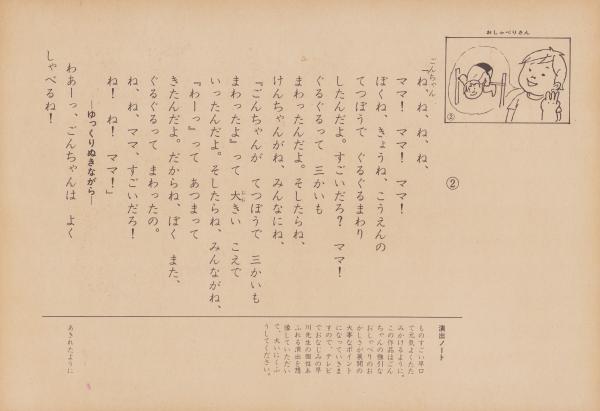 おしゃべりさん
②
②
ごんちゃん
「ね、ね、ね、ね、
ママ！　ママ！　ママ！
ぼくね、きょうね、こうえんの
てつぼうで　ぐるぐるまわり
したんだよ。すごいだろ？　ママ！
ぐるぐるって　三かいも
まわったんだよ。そしたらね、
けんちゃんがね、みんなにね、
『ごんちゃんが　てつぼうで　三かいも
まわったよ』って　大きい　こえで
いったんだよ。そしたらね、みんながね、
『わーっ』って　あつまって
きたんだよ。だからね、ぼく　また、
ぐるぐるって　まわったの。
ね、ね、ママ、すごいだろ！
ね！　ね！　ママ！」
―ゆっくりぬきながら―
わあーっ、ごんちゃんは　よく
しゃべるね！
演出ノート
ものすごい早口
で元気よくたた
みかけるように。
この作品はごん
ちゃんの強引な
おしゃべりのお
かしさが展開の
大事なポイント
になっていきま
すので、テレビ
でおなじみの早
川先生の個性あ
ふれる演出を想
像していただい
て、大いにくふ
うしてください。
あきれたように